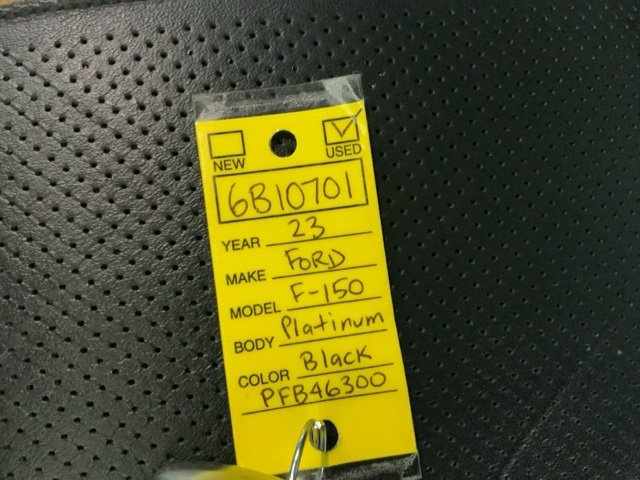 NEW USED
6B10701
YEAR 23
MAKE FORD
MODEL F-150
BODY Platinum
COLOR Black
PFB46300